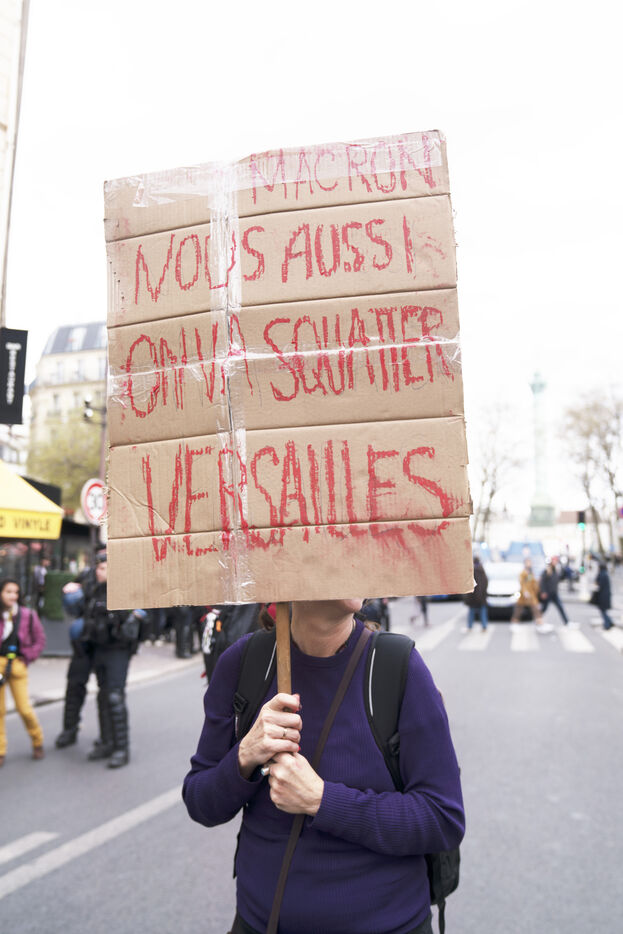 MACRON
NOUS AUSSI
ON VA SQUATTER
VERSAILLES
VINYLE